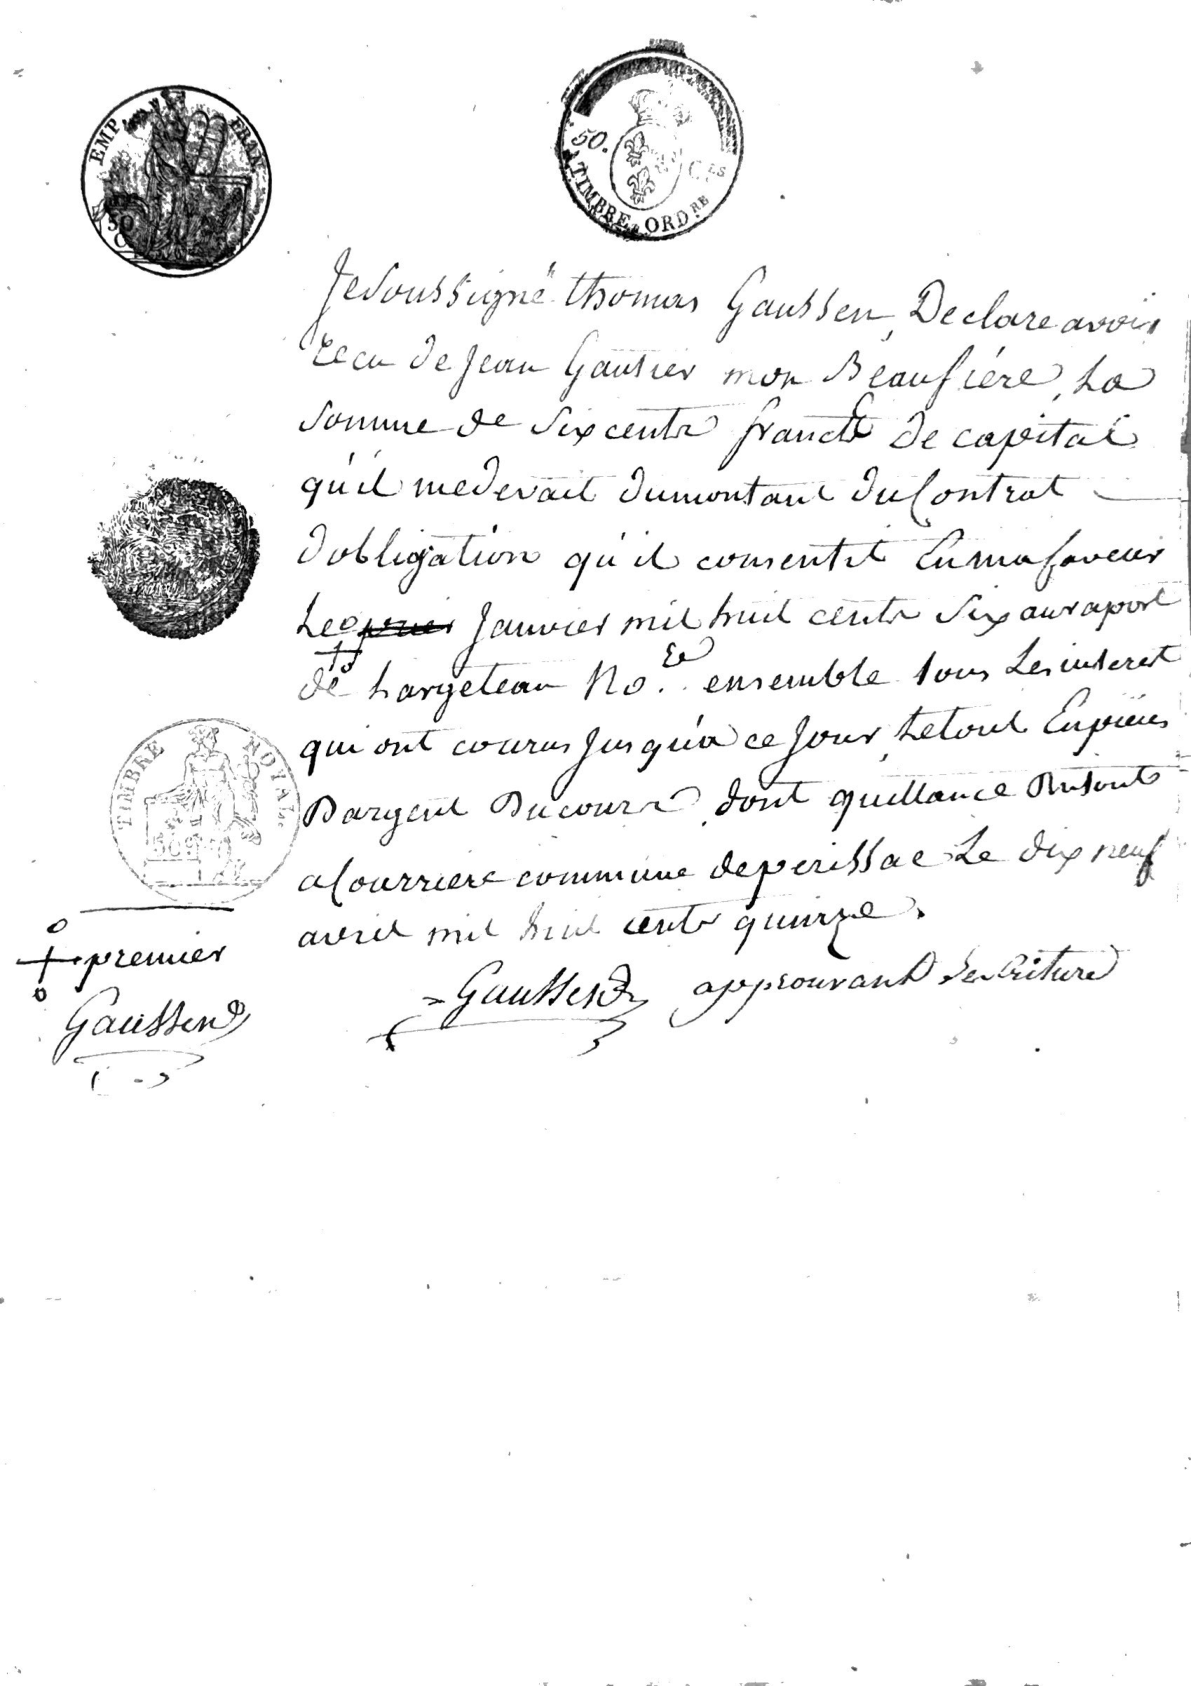 EMP. FRAN.
50
C
50. Ces
TIMBRE ORDRE
Je soussigné thomas Gaussen, Declare avoir
recu de Jean Gautier mon Beaufrére, La
somme de six cents francs de capital
qu'il me devait du montant du Contrat
dobligation qu'il consentit En ma faveur
Le prier Janvier mil huit cents six au raport
de hargeteau No.re ensemble tous Les interest
qui ont courus Jusqu'a ce Jour, Le tout En pieces
Dargent Du cours, dont quittance
a Courriere commune de perissac Le dix neuf
avril mil huit cents quinze.
TIMBRE ROYAL.
50
premier
Gaussen
Gaussen approuvant Lecriture